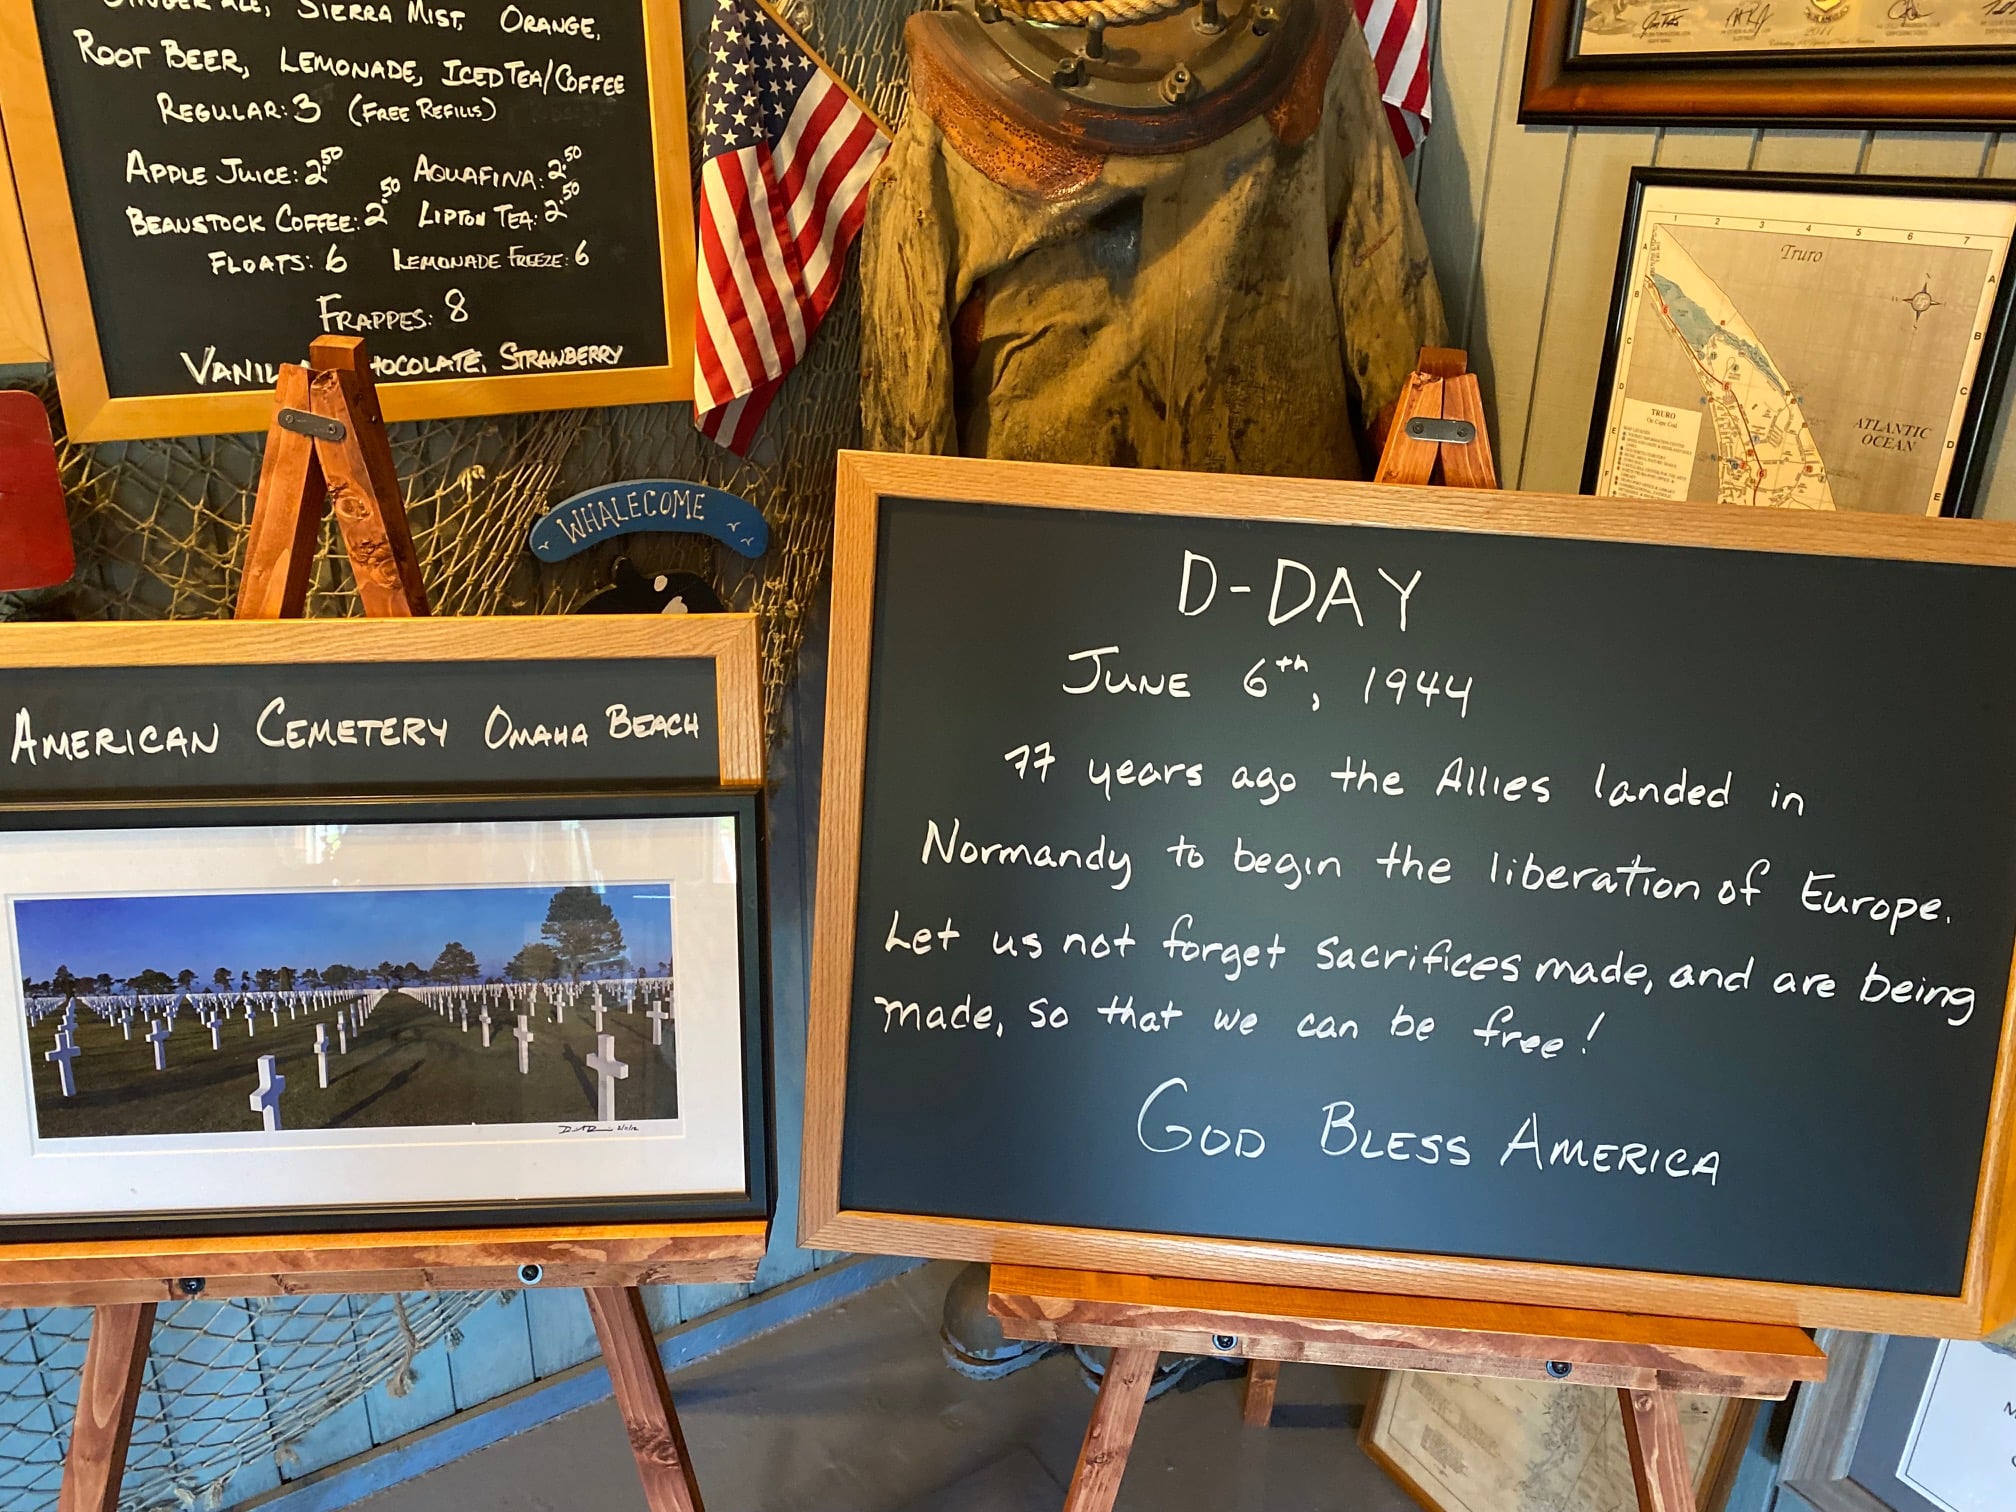 SIERRA MIST, ORANGE,
ROOT BEER, LEMONADE, ICED TEA/COFFEE
REGULAR: 3 (FREE REFILLS)
APPLE JUICE: 2.50 AQUAFINA: 2.50
BEANSTOCK COFFEE: 2.50 LIPTON TEA: 2.50
FLOATS: 6 LEMONADE FREEZE: 6
FRAPPES: 8
STRAWBERRY
WHALECOME
AMERICAN CEMETERY OMAHA BEACH
D-DAY
JUNE 6th, 1944
77 years ago the Allies landed in
Normandy to begin the liberation of Europe.
Let us not forget sacrifices made, and are being
made, so that we can be free!
GOD BLESS AMERICA
2011
1 2 3 4 5 6 7
Truro
ATLANTIC
OCEAN
TRURO
On Cape Cod
A
B
C
D
E
F
A
B
C
D
E